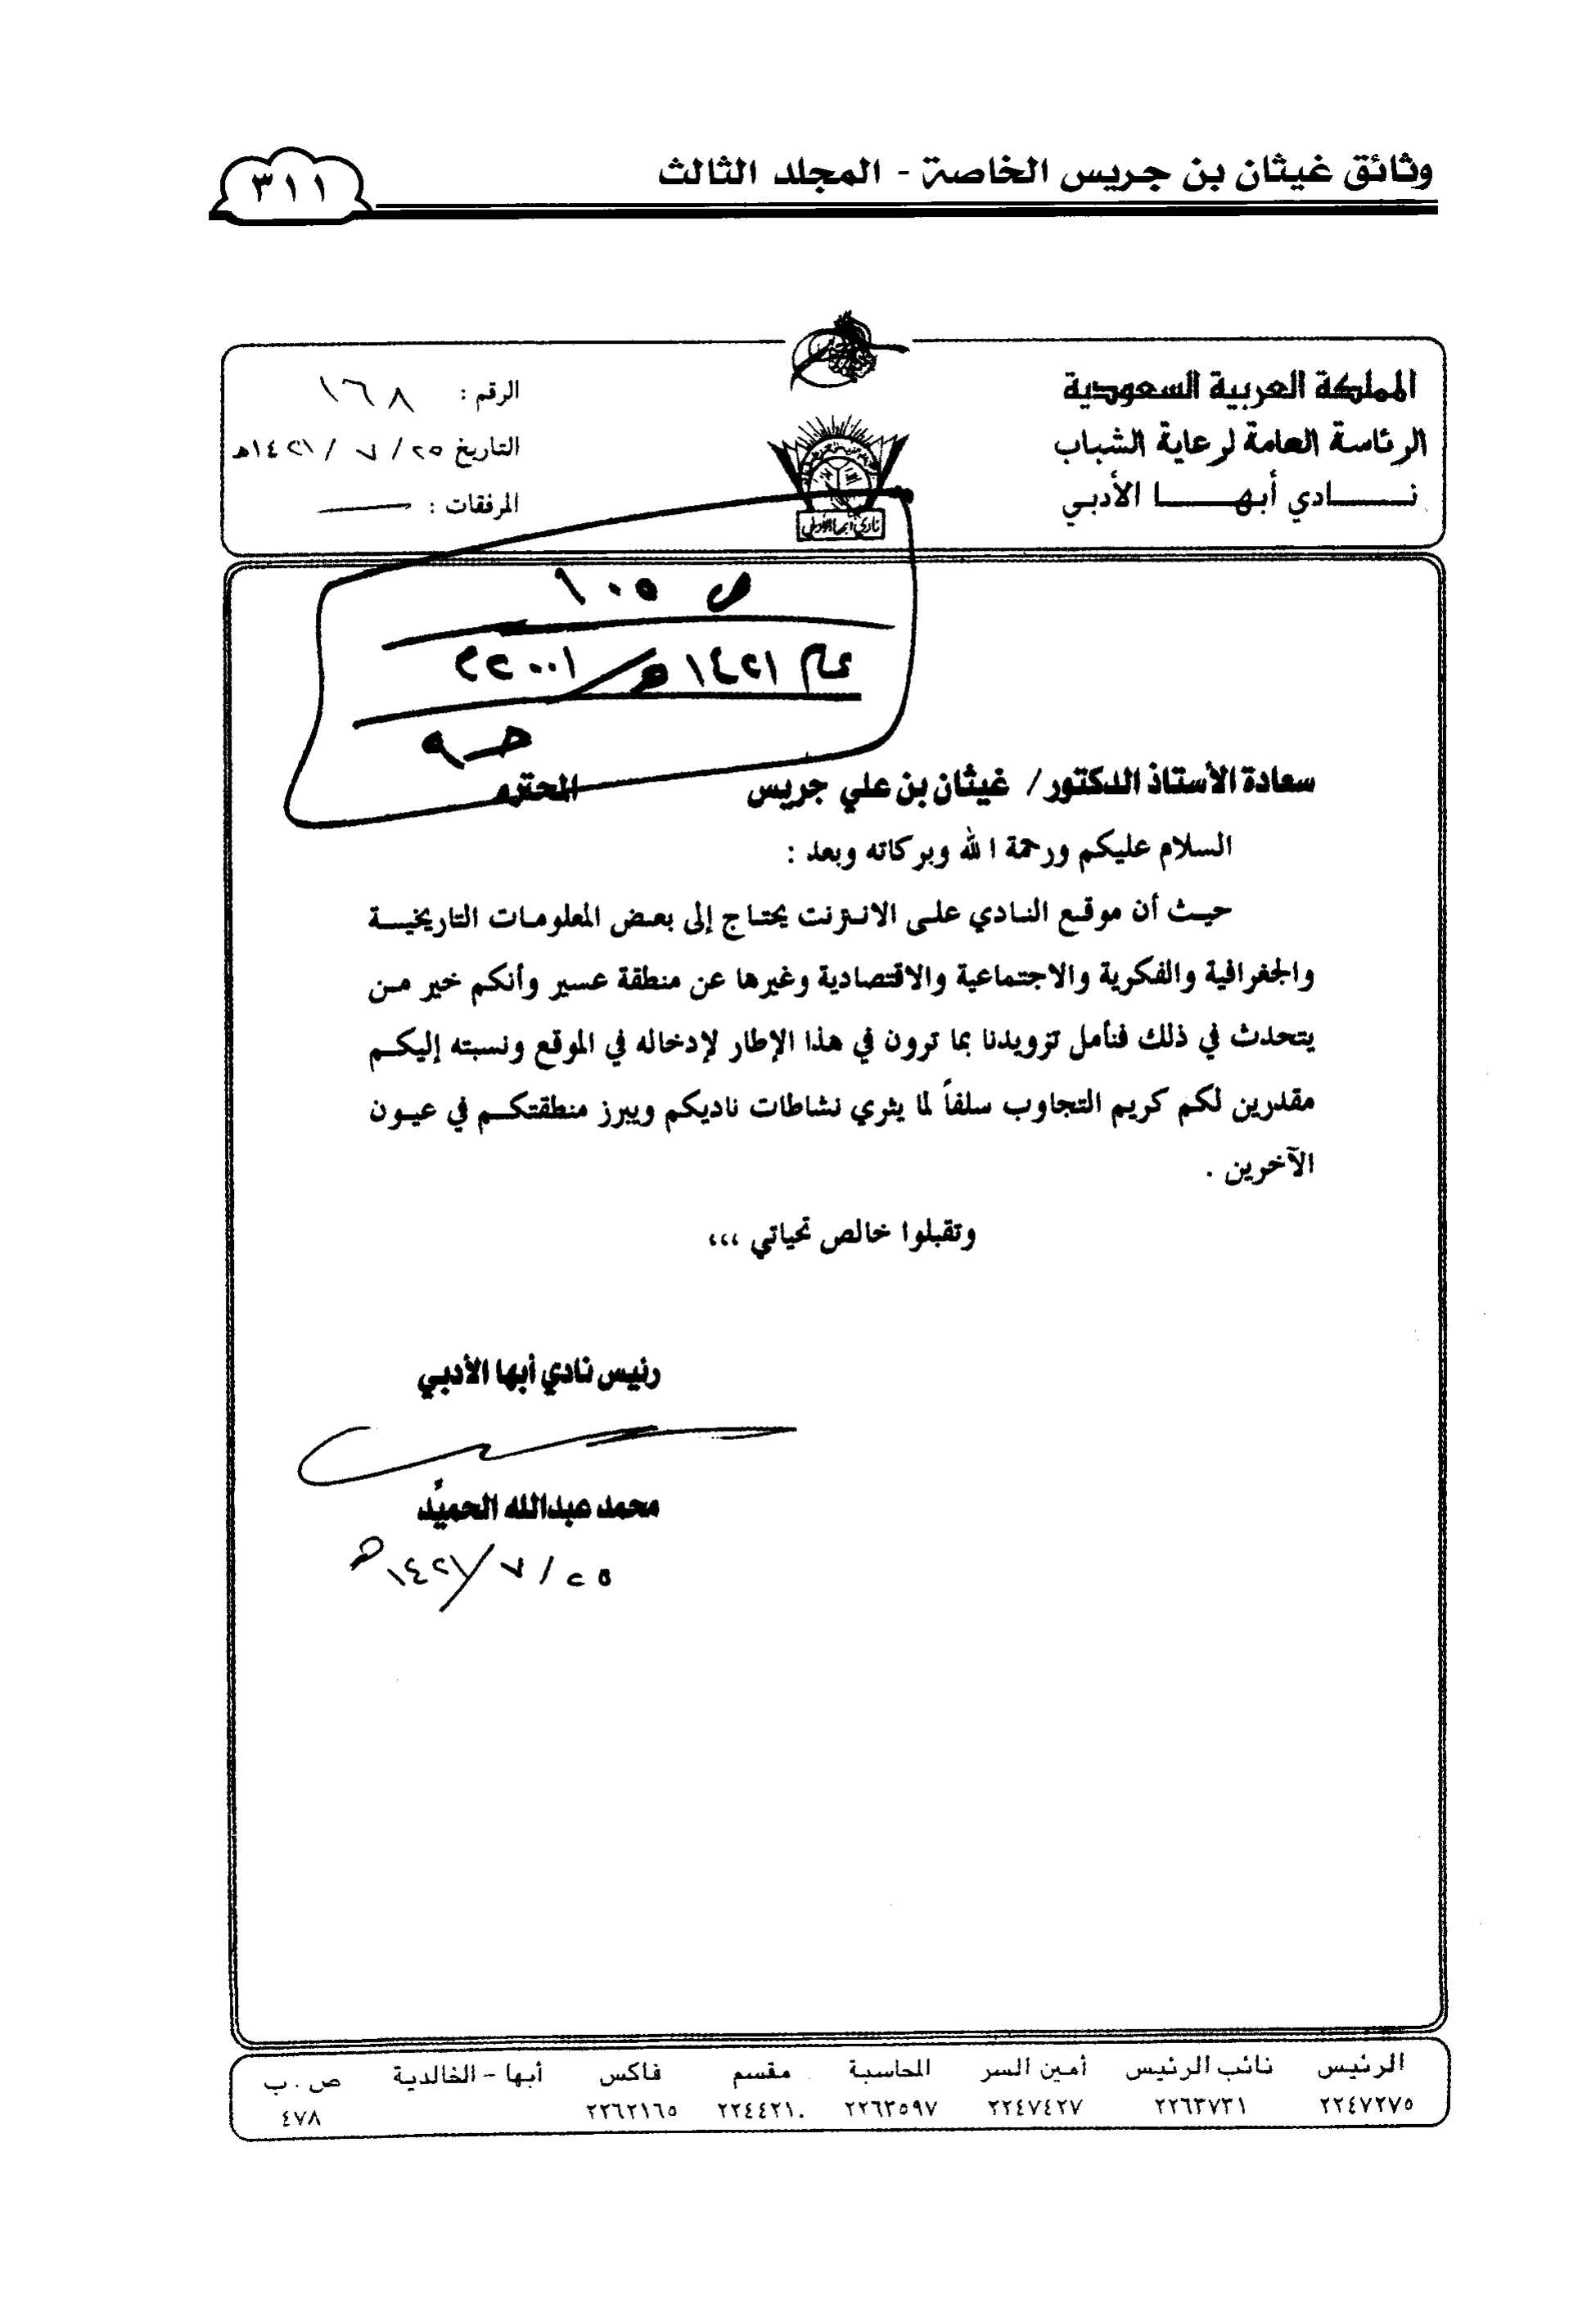 وثائق غيثان بن جريس الخاصة - المجلد الثالث
٣١١
المملكة العربية السعودية
الرئاسة العامة لرعاية الشباب
نـــادي أبهـــا الأدبي
الرقم : ١٦٨
التاريخ ٢٥ / ٧ / ١٤٢١هـ
المرفقات :
نادي أبها الأدبي
ص ١٠٥
عام ١٤٢١هـ / ٢٠٠١م
سعادة الأستاذ الدكتور / غيثان بن علي جريس المحترم
السلام عليكم ورحمة الله وبركاته وبعد :
حيث أن موقع النادي على الانترنت يحتاج إلى بعض المعلومات التاريخية
والجغرافية والفكرية والاجتماعية والاقتصادية وغيرها عن منطقة عسير وأنكم خير من
يتحدث في ذلك فنأمل تزويدنا بما ترون في هذا الإطار لإدخاله في الموقع ونسبته إليكم
مقدرين لكم كريم التجاوب سلفاً لما يثري نشاطات ناديكم ويبرز منطقتكم في عيون
الآخرين .
وتقبلوا خالص تحياتي ،،،
رئيس نادي أبها الأدبي
محمد عبدالله الحميّد
٢٥ / ٧ / ١٤٢١هـ
الرئيس نائب الرئيس أمين السر المحاسبة مقسم فاكس أبها - الخالدية ص . ب
٢٢٤٧٢٧٥ ٢٢٦٣٧٣١ ٢٢٤٧٤٢٧ ٢٢٦٣٥٩٧ ٢٢٤٤٢١٠ ٢٢٦٢١٦٥ ٤٧٨